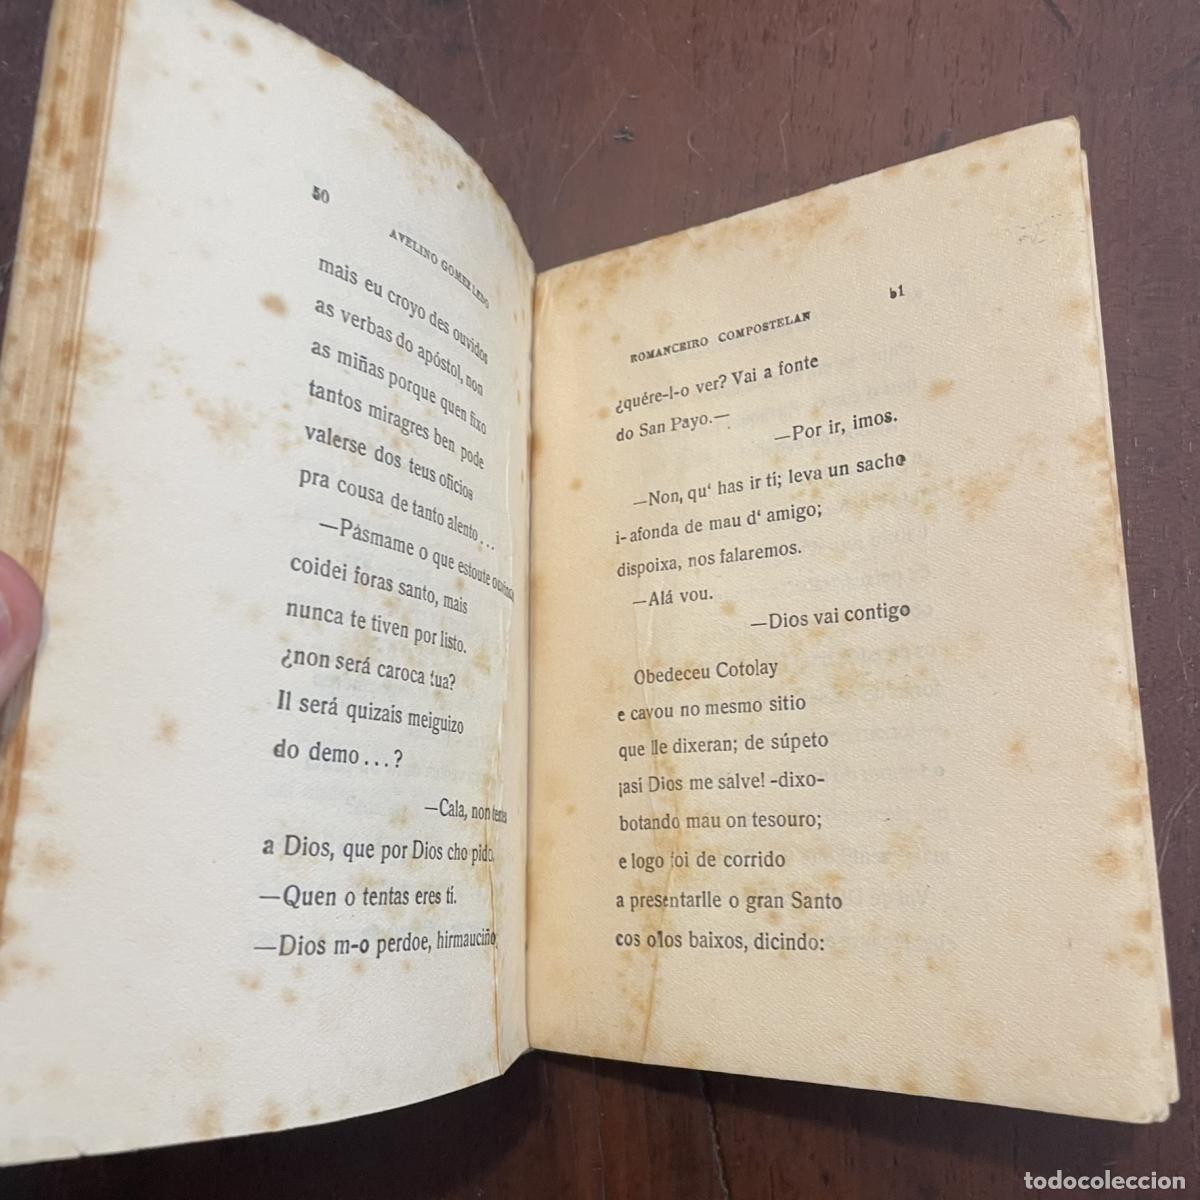 50
AVELINO GOMEZ LEDO
mais eu croyo des ouvidos
as verbas do apóstol, non
as miñas porque quen fixo
tantos miragres ben pode
valerse dos teus oficios
pra cousa de tanto alento...
—Pásmame o que estoute
coidei foras santo, mais
nunca te tiven por listo.
¿non será caroca tua?
Il será quizais meiguizo
do demo...?
—Cala, non tentes
a Dios, que por Dios cho pido.
—Quen o tentas eres tí.
—Dios m-o perdoe, hirmauciño;
51
ROMANCEIRO COMPOSTELAN
¿quére-l-o ver? Vai a fonte
do San Payo.—
—Por ir, imos.
—Non, qu‘ has ir tí; leva un sacho
i-afonda de mau d‘ amigo;
dispoixa, nos falaremos.
—Alá vou.
—Dios vai contigo
Obedeceu Cotolay
e cavou no mesmo sitio
que lle dixeran; de súpeto
¡asi Dios me salve! -dixo-
botando mau on tesouro;
e logo foi de corrido
a presentarlle o gran Santo
cos olos baixos, dicindo:
todocoleccion